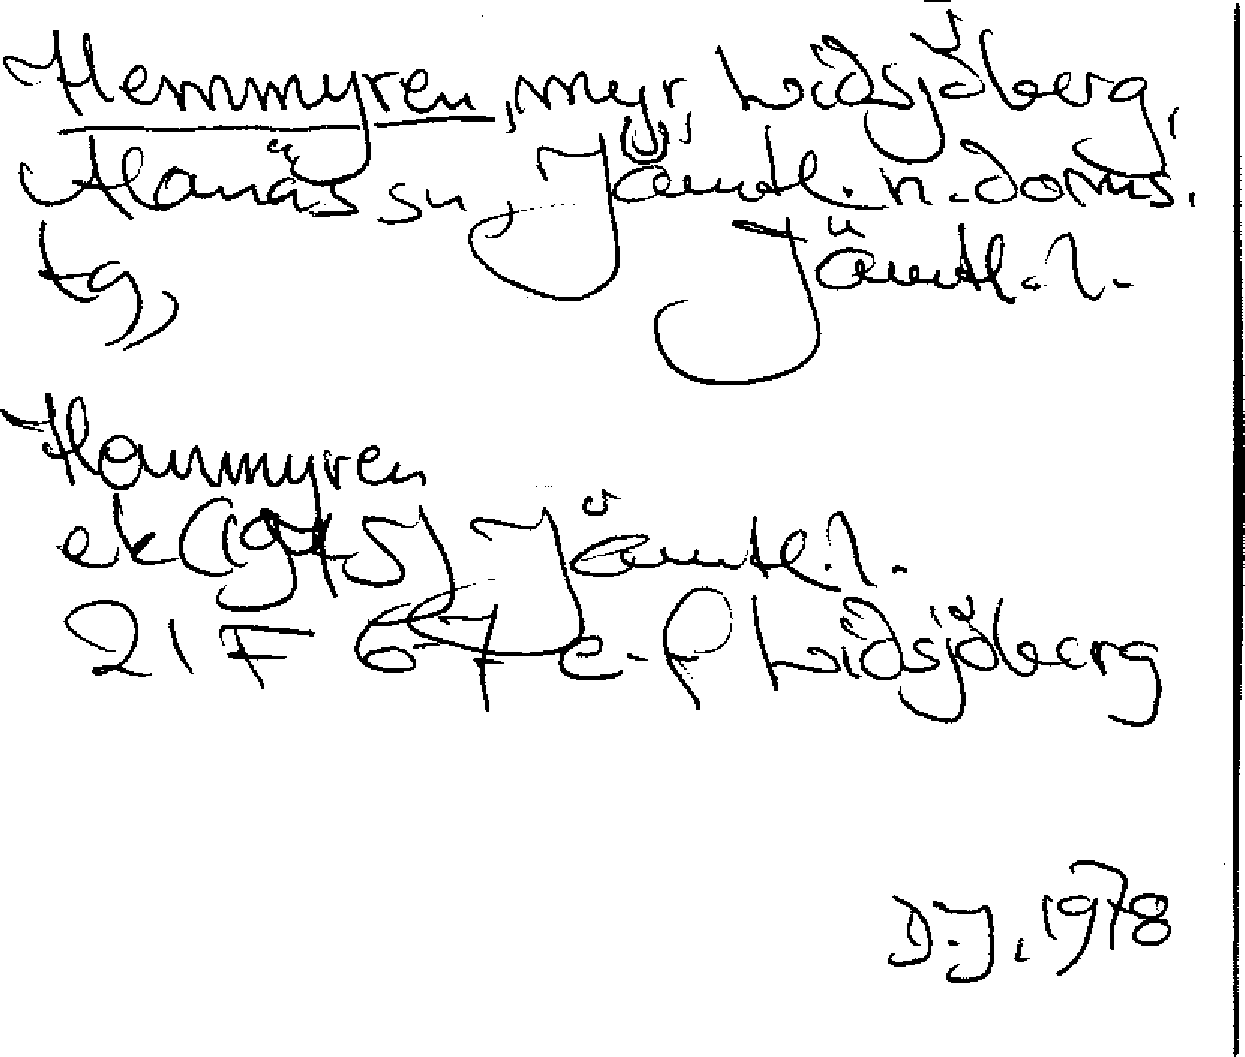 Hemmyren, myr, Lidsjöberg,
Alanäs sn, Jämtl. n. doms.
tg,
Jämtl. l.
Hommyren
ek (1975) Jämtl. l.
21 F 67 e-f Lidsjöberg
D.J. 1978